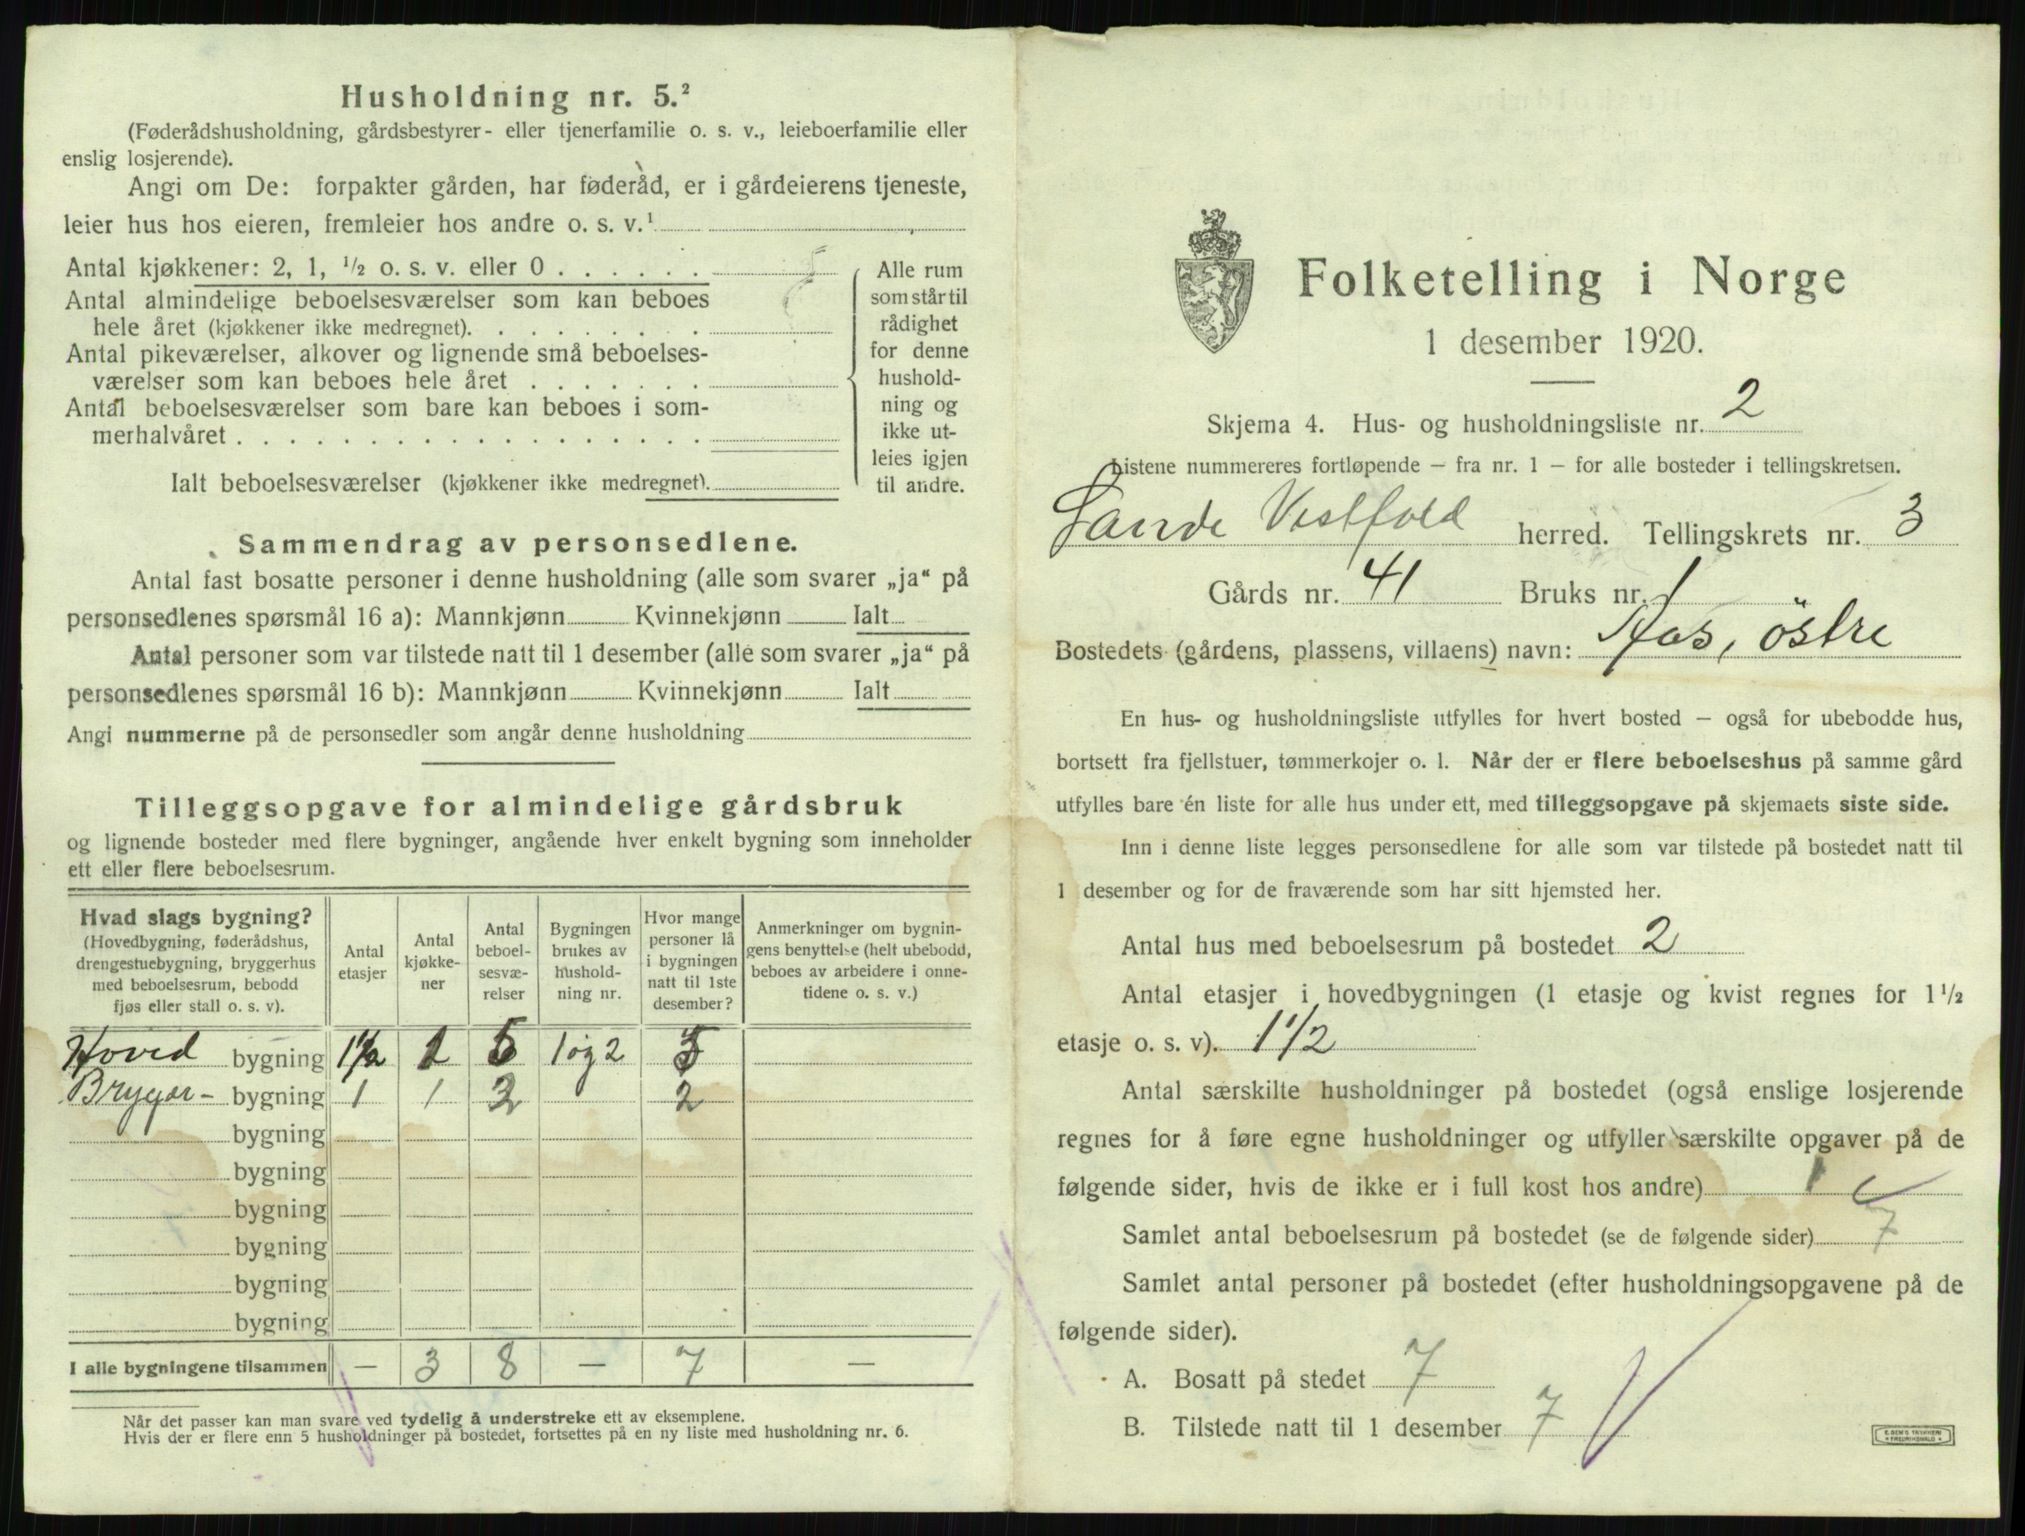 Husholdning nr. 5.²
(Føderådshusholdning, gårdsbestyrer- eller tjenerfamilie o. s. v., leieboerfamilie eller
enslig losjerende).
Angi om De: forpakter gården, har føderåd, er i gårdeierens tjeneste,
leier hus hos eieren, fremleier hos andre o. s. v.¹
Antal kjøkkener: 2, 1, ½ o. s. v. eller 0 . . . . . .
Antal almindelige beboelsesværelser som kan beboes
hele året (kjøkkener ikke medregnet). . . . . . . . .
Antal pikeværelser, alkover og lignende små beboelses-
værelser som kan beboes hele året . . . . . . .
Antal beboelsesværelser som bare kan beboes i som-
merhalvåret . . . . . . . . . . . . . . . . . .
Ialt beboelsesværelser (kjøkkener ikke medregnet).
Alle rum
som står til
rådighet
for denne
hushold-
ning og
ikke ut-
leies igjen
til andre.
Sammendrag av personsedlene.
Antal fast bosatte personer i denne husholdning (alle som svarer „ja“ på
personsedlenes spørsmål 16 a): Mannkjønn Kvinnekjønn Ialt
Antal personer som var tilstede natt til 1 desember (alle som svarer „ja“ på
personsedlenes spørsmål 16 b): Mannkjønn Kvinnekjønn Ialt
Angi nummerne på de personsedler som angår denne husholdning
Tilleggsopgave for almindelige gårdsbruk
og lignende bosteder med flere bygninger, angående hver enkelt bygning som inneholder
ett eller flere beboelsesrum.
Hvad slags bygning?
(Hovedbygning, føderådshus,
drengestuebygning, bryggerhus
med beboelsesrum, bebodd
fjøs eller stall o. s. v).
Antal
etasjer
Antal
kjøkke-
ner
Antal
beboel-
sesvæ-
relser
Bygningen
brukes av
hushold-
ning nr.
Hvor mange
personer lå
i bygningen
natt til 1ste
desember?
Anmerkninger om bygnin-
gens benyttelse (helt ubebodd,
beboes av arbeidere i onne-
tidene o. s. v.)
Hoved bygning 1½ 5 1 og 2 5
Brygger- bygning 1 1 2
bygning
bygning
bygning
bygning
bygning
bygning
I alle bygningene tilsammen — 3 8 — 7 —
Når det passer kan man svare ved tydelig å understreke ett av eksemplene.
Hvis der er flere enn 5 husholdninger på bostedet, fortsettes på en ny liste med husholdning nr. 6.
Folketelling i Norge
1 desember 1920.
Skjema 4. Hus- og husholdningsliste nr. 2
Listene nummereres fortløpende – fra nr. 1 – for alle bosteder i tellingskretsen.
Sande Vestfold herred. Tellingskrets nr. 3
Gårds nr. 41 Bruks nr. 1
Bostedets (gårdens, plassens, villaens) navn: Aas, östre
En hus- og husholdningsliste utfylles for hvert bosted – også for ubebodde hus,
bortsett fra fjellstuer, tømmerkojer o. l. Når der er flere beboelseshus på samme gård
utfylles bare én liste for alle hus under ett, med tilleggsopgave på skjemaets siste side.
Inn i denne liste legges personsedlene for alle som var tilstede på bostedet natt til
1 desember og for de fraværende som har sitt hjemsted her.
Antal hus med beboelsesrum på bostedet 2
Antal etasjer i hovedbygningen (1 etasje og kvist regnes for 1½
etasje o. s. v). 1½
Antal særskilte husholdninger på bostedet (også enslige losjerende
regnes for å føre egne husholdninger og utfyller særskilte opgaver på de
følgende sider, hvis de ikke er i full kost hos andre) 1
Samlet antal beboelsesrum på bostedet (se de følgende sider) 7
Samlet antal personer på bostedet (efter husholdningsopgavene på de
følgende sider).
A. Bosatt på stedet 7
B. Tilstede natt til 1 desember 7